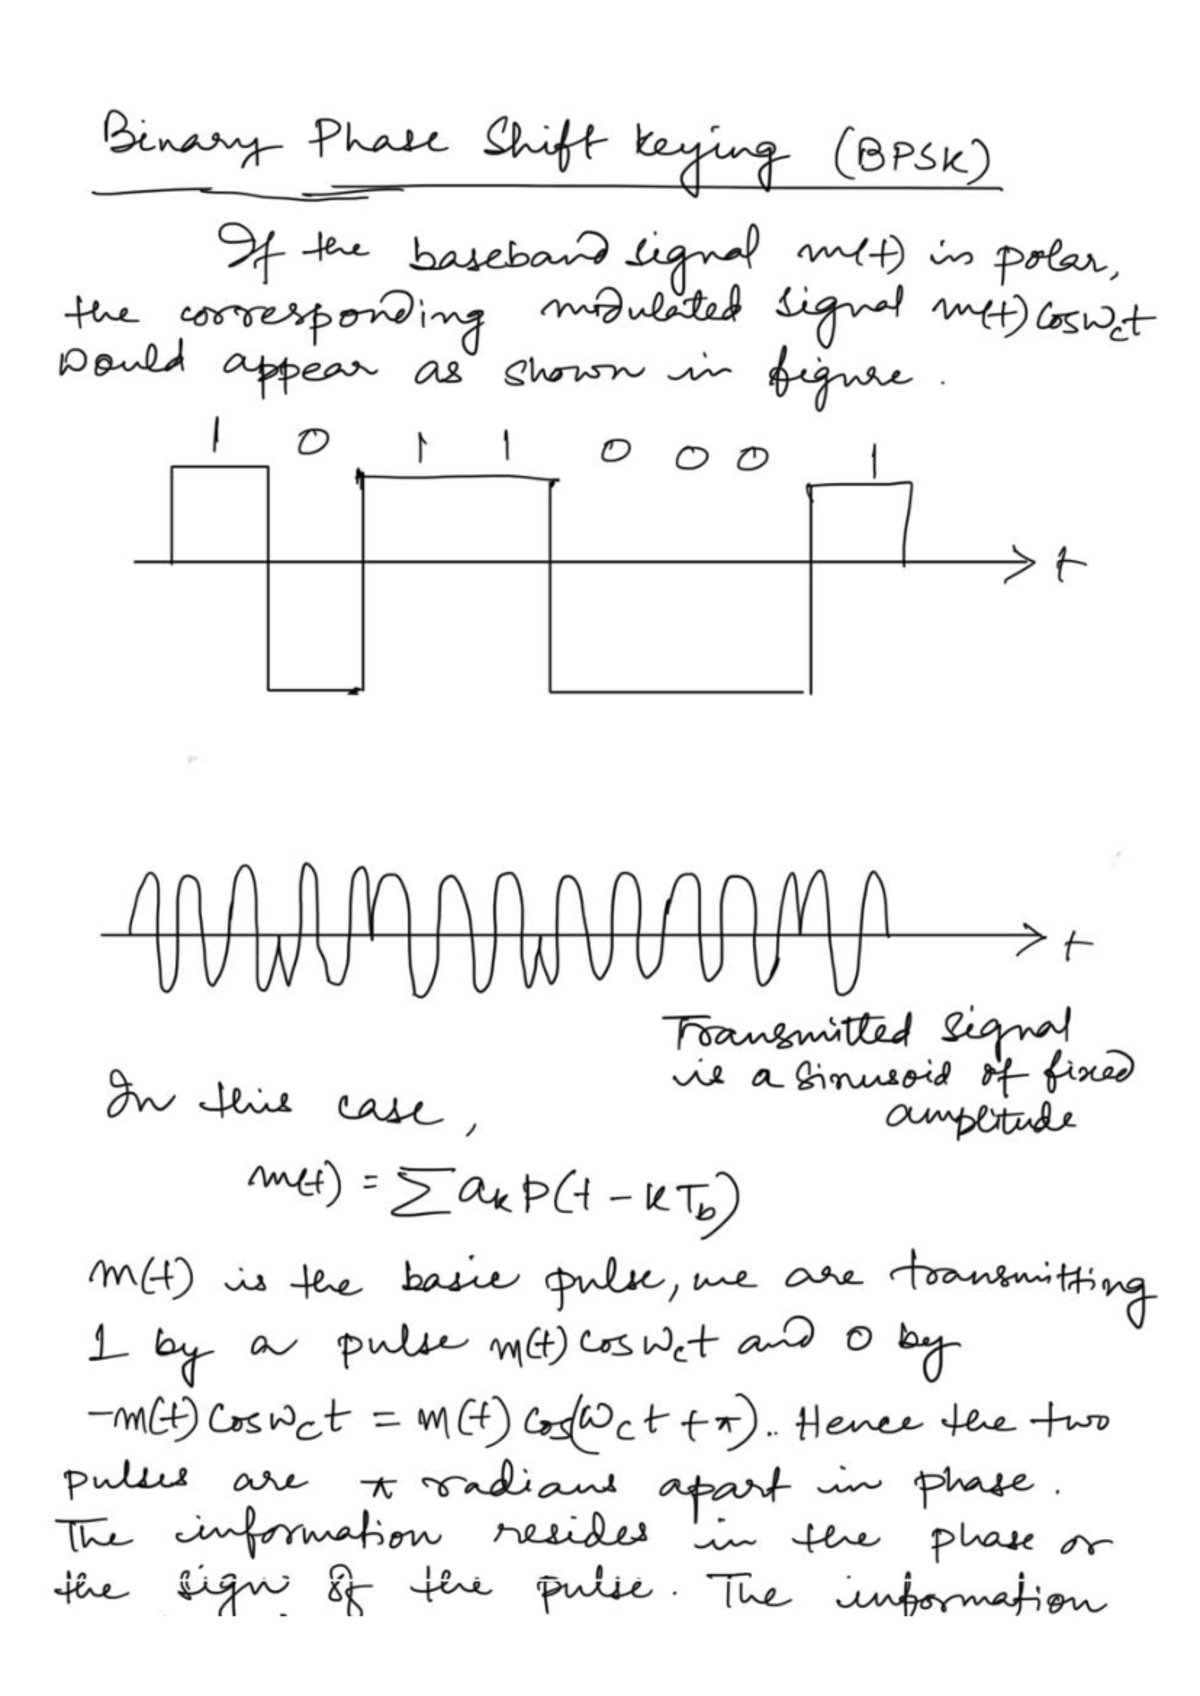 Binary Phase Shift Keying (BPSK)
If the baseband signal m(t) is polar,
the corresponding modulated signal m(t) cosω_ct
would appear as shown in figure.
1 0 1 1 0 0 0 1
t
t
Transmitted signal
is a sinusoid of fixed
amplitude
In this case,
m(t) = Σ a_k p(t - kT_b)
m(t) is the basic pulse, we are transmitting
1 by a pulse m(t) cosω_ct and 0 by
-m(t) cosω_ct = m(t) cos(ω_ct + π).. Hence the two
pulses are π radians apart in phase.
The information resides in the phase or
the sign of the pulse. The information